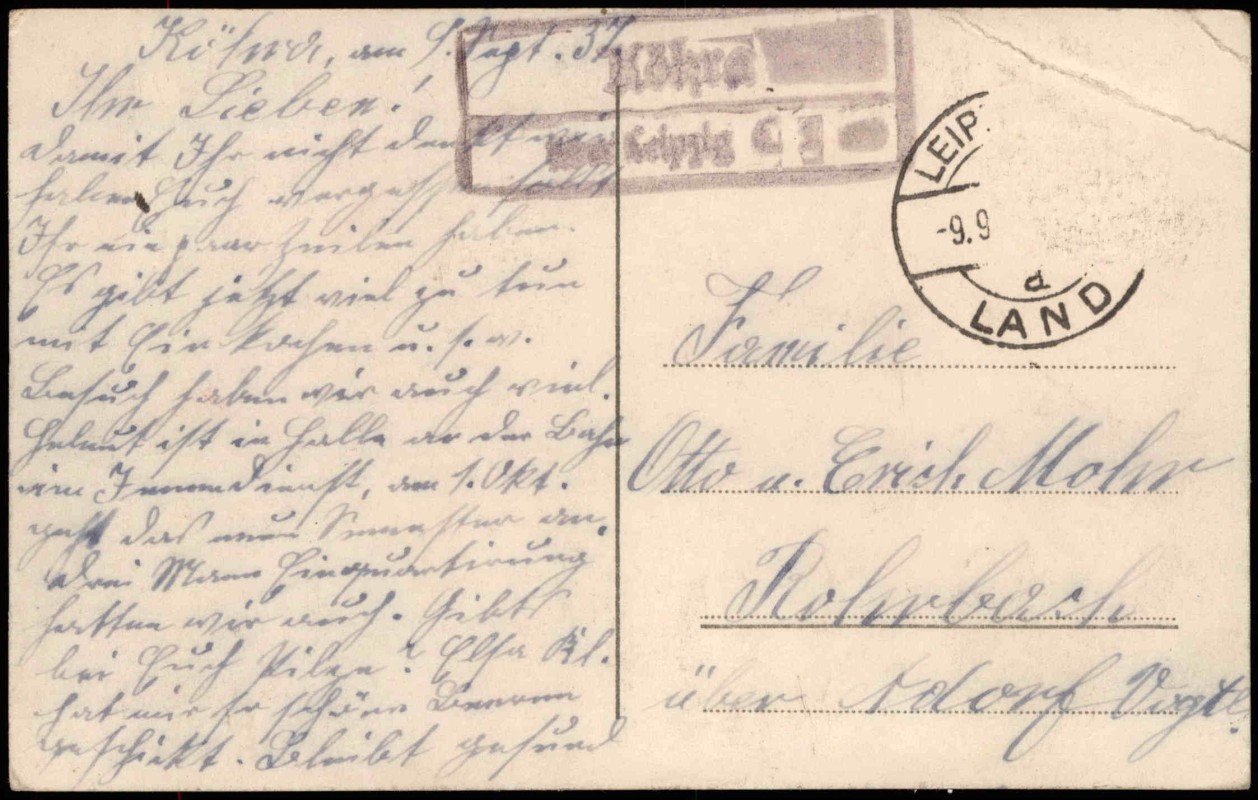 Köhra, am 8. Sept. 37
Ihr Lieben!
Damit Ihr nicht denkt wir
haben Euch vergessen sollt
Ihr ein paar Zeilen haben.
Es gibt jetzt viel zu tun
mit Einkochen u. s. w.
Besuch haben wir auch viel.
Helmut ist in Halle an der Bahn
im Innendienst, am 1. Okt.
geht das neue Semester an.
Drei Mann Einquartirung
hatten wir auch. Gibts
bei Euch Pilze? Elsa Kl.
hat mir so schöne Beeren
geschickt. Bleibt gesund
Köhra
Leipzig C 1
LEIP
-9.9
a
LAND
Familie
Otto u. Erich Mohr
Rohrbach
über Adorf Vogtl